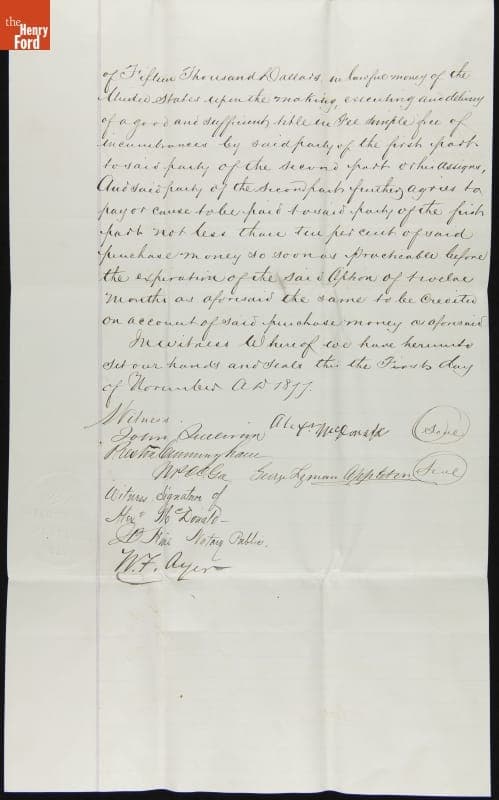 the
Henry
Ford
of Fifteen Thousand Dollars in lawful money of the
United States upon the making, executing and delivery
of a good and sufficient title in Fee Simple free of
incumbrances by said party of the first part
to said party of the second part or her assigns,
And said party of the second part further agrees to
pay or cause to be paid to said party of the first
part not less than ten per cent of said
purchase money so soon as practicable before
the expiration of the said Option of twelve
months as aforesaid the same to be credited
on account of said purchase money as aforesaid
In witness Whereof we have hereunto
set our hands and seals this the First day
of November A D 1877.
Witness
John Sullivan Alexr McDonald Seal
Cunningham
George Lyman Appleton Seal
Witness Signature of
Alexr McDonald
Notary Public.
W. F. Ayer